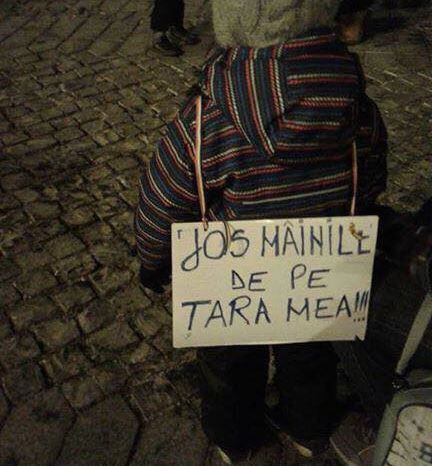 JOS MÂINILE
DE PE
TARA MEA!!!